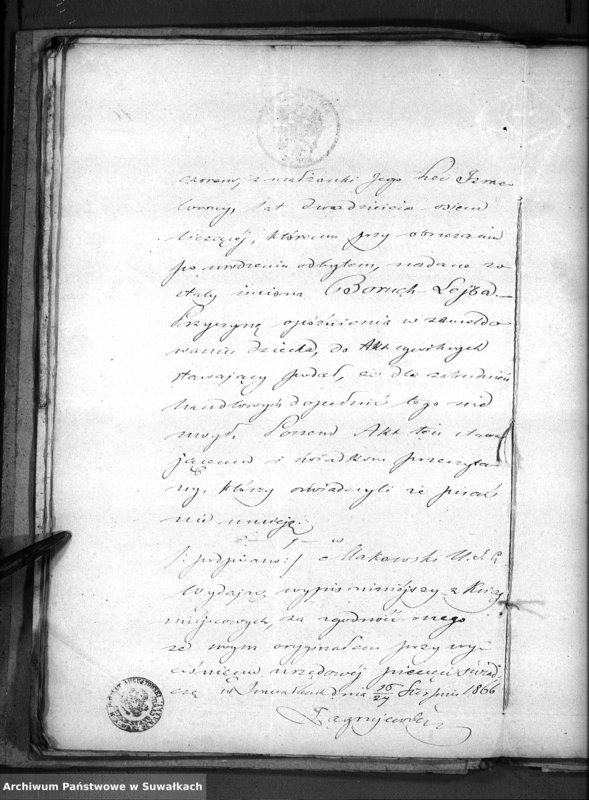 czorem, z małżonki Jego Lei Izrae-
lowny, lat dwadzieścia osiem
liczącéj, któremu przy obrzezaniu
po urodzeniu odbytem, nadane zo
stały imiona Boruch Lejba
Przyczynę opóźnienia w zameldo
waniu dziecka, do Akt cywilnych
stawający podał, że dla zatrudnień
handlowych dopełnić tego nie
mógł. Poczem Akt ten stawa
jącemu i świadkom przeczyta
ny, którzy oświadczyli że pisać
nie umieją.
/: podpisano :/ Makowski U. S. C.
Wydając wypis niniejszy z Ksiąg
miejscowych, za zgodność onego
ze swym oryginałem przy wy
ciśnięciu urzędowéj pieczęci świad
czę w Suwałkach dnia 15/27 Sierpnia 1866
Zagrajewski
Archiwum Państwowe w Suwałkach